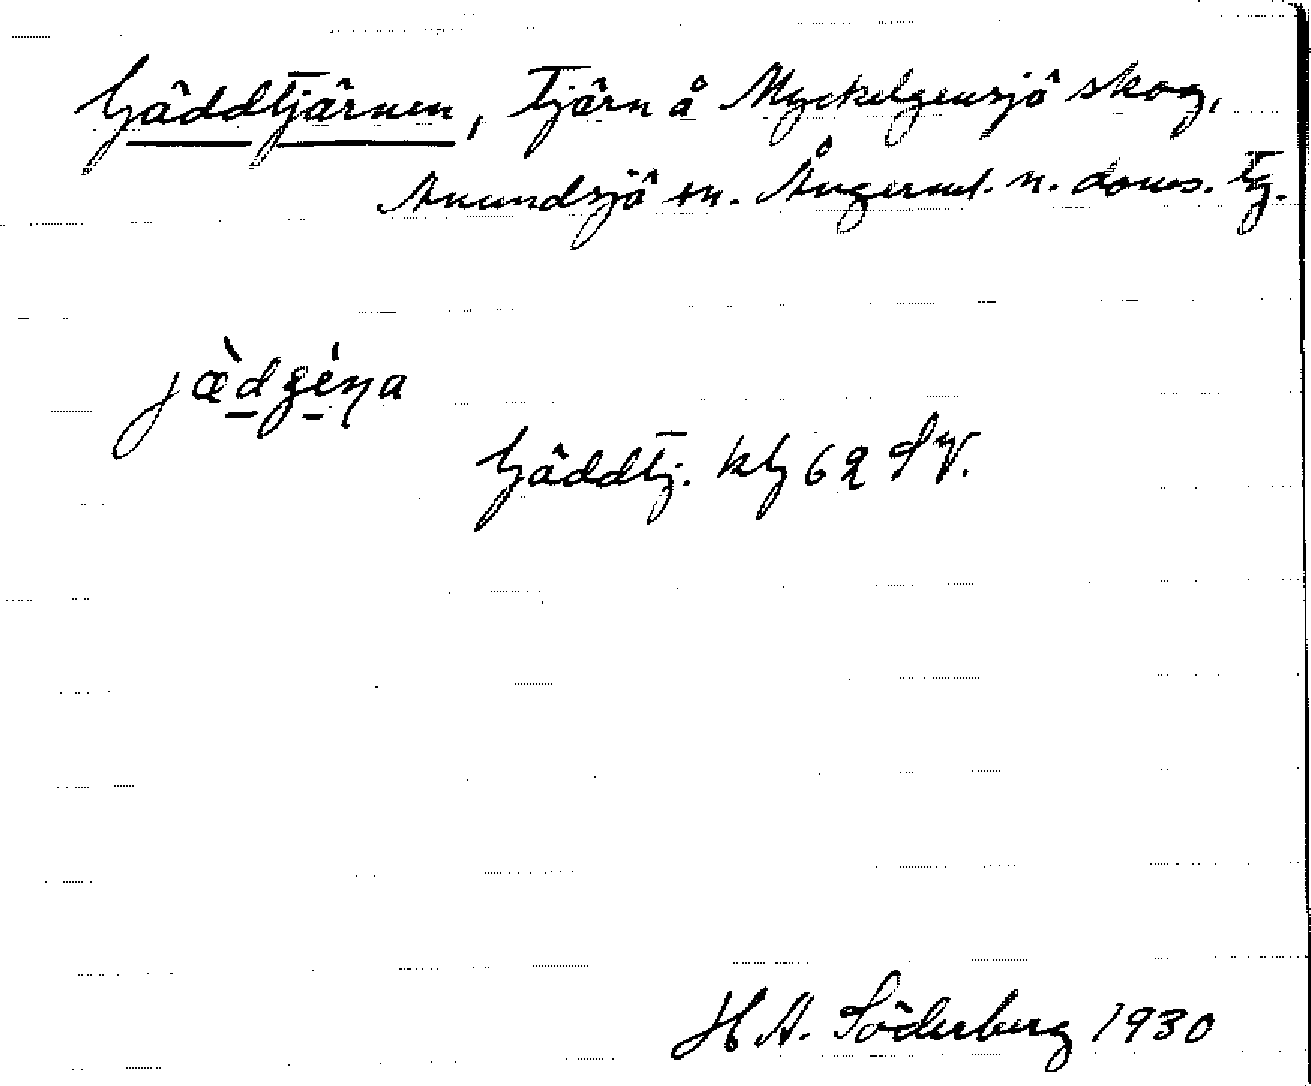 Gäddtjärnen, tjärn å Myckelgensjö skog,
Anundsjö sn. Ångerml. n. doms. tg.
jæ̀dgéṇa
Gäddtj. kbl 62 SV.
H A. Söderberg 1930